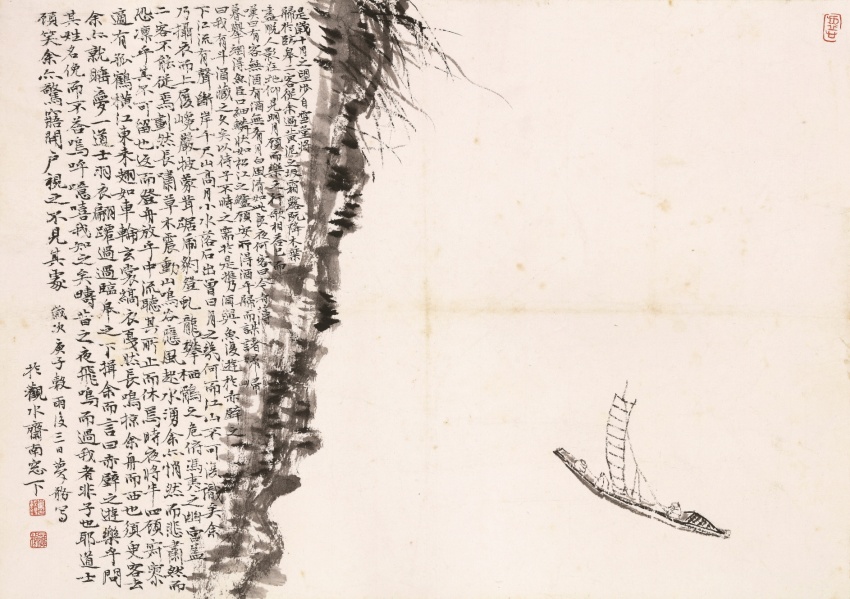 是歲十月之望步自雪堂將
歸於臨皋二客從余過黃泥之坂霜露既降木葉
盡脫人影在地仰見明月顧而樂之行歌相答已而
嘆曰有客無酒有酒無肴月白風清如此良夜何客曰今者薄
暮舉網得魚巨口細鱗狀如松江之鱸顧安所得酒乎歸而謀諸婦婦
曰我有斗酒藏之久矣以待子不時之需於是攜酒與魚復遊於赤壁之
下江流有聲斷岸千尺山高月小水落石出曾日月之幾何而江山不可復識矣余
乃攝衣而上履巉巖披蒙茸踞虎豹登虬龍攀栖鶻之危俯馮夷之幽宮蓋
二客不能從焉劃然長嘯草木震動山鳴谷應風起水湧余亦悄然而悲肅然而
恐凜乎其不可留也返而登舟放乎中流聽其所止而休焉時夜將半四顧寂寥
適有孤鶴橫江東來翅如車輪玄裳縞衣戛然長鳴掠余舟而西也須臾客去
余亦就睡夢一道士羽衣翩躚過過臨皋之下揖余而言曰赤壁之遊樂乎問
其姓名俛而不答嗚呼噫嘻我知之矣疇昔之夜飛鳴而過我者非子也耶道士
顧笑余亦驚寤開戶視之不見其處 歲次庚子穀雨後三日夢写
於觀水齋南窓下